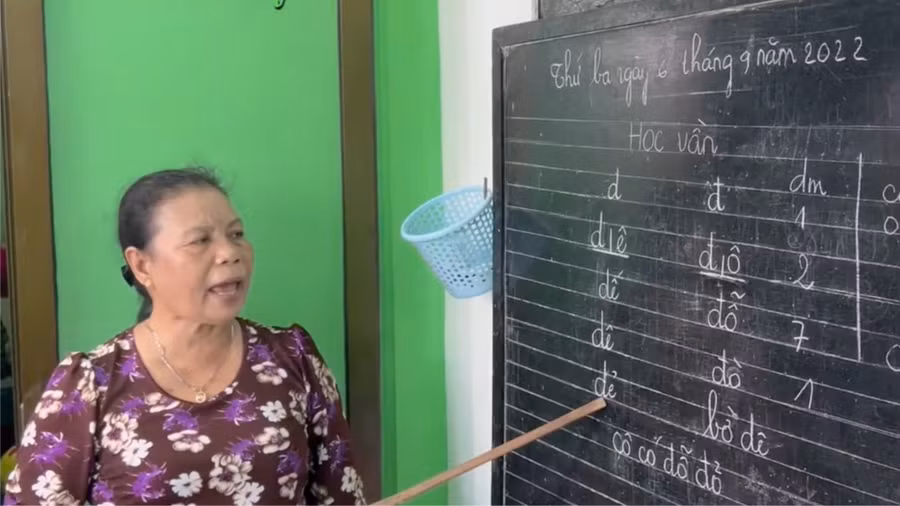 Thứ ba ngày 6 tháng 9 năm 2022
Học vần
d đ dm
1
d|ê đ|ô 2
dế đỗ 7
dê đồ 1
dẻ bờ dê
cô có đỗ đỏ